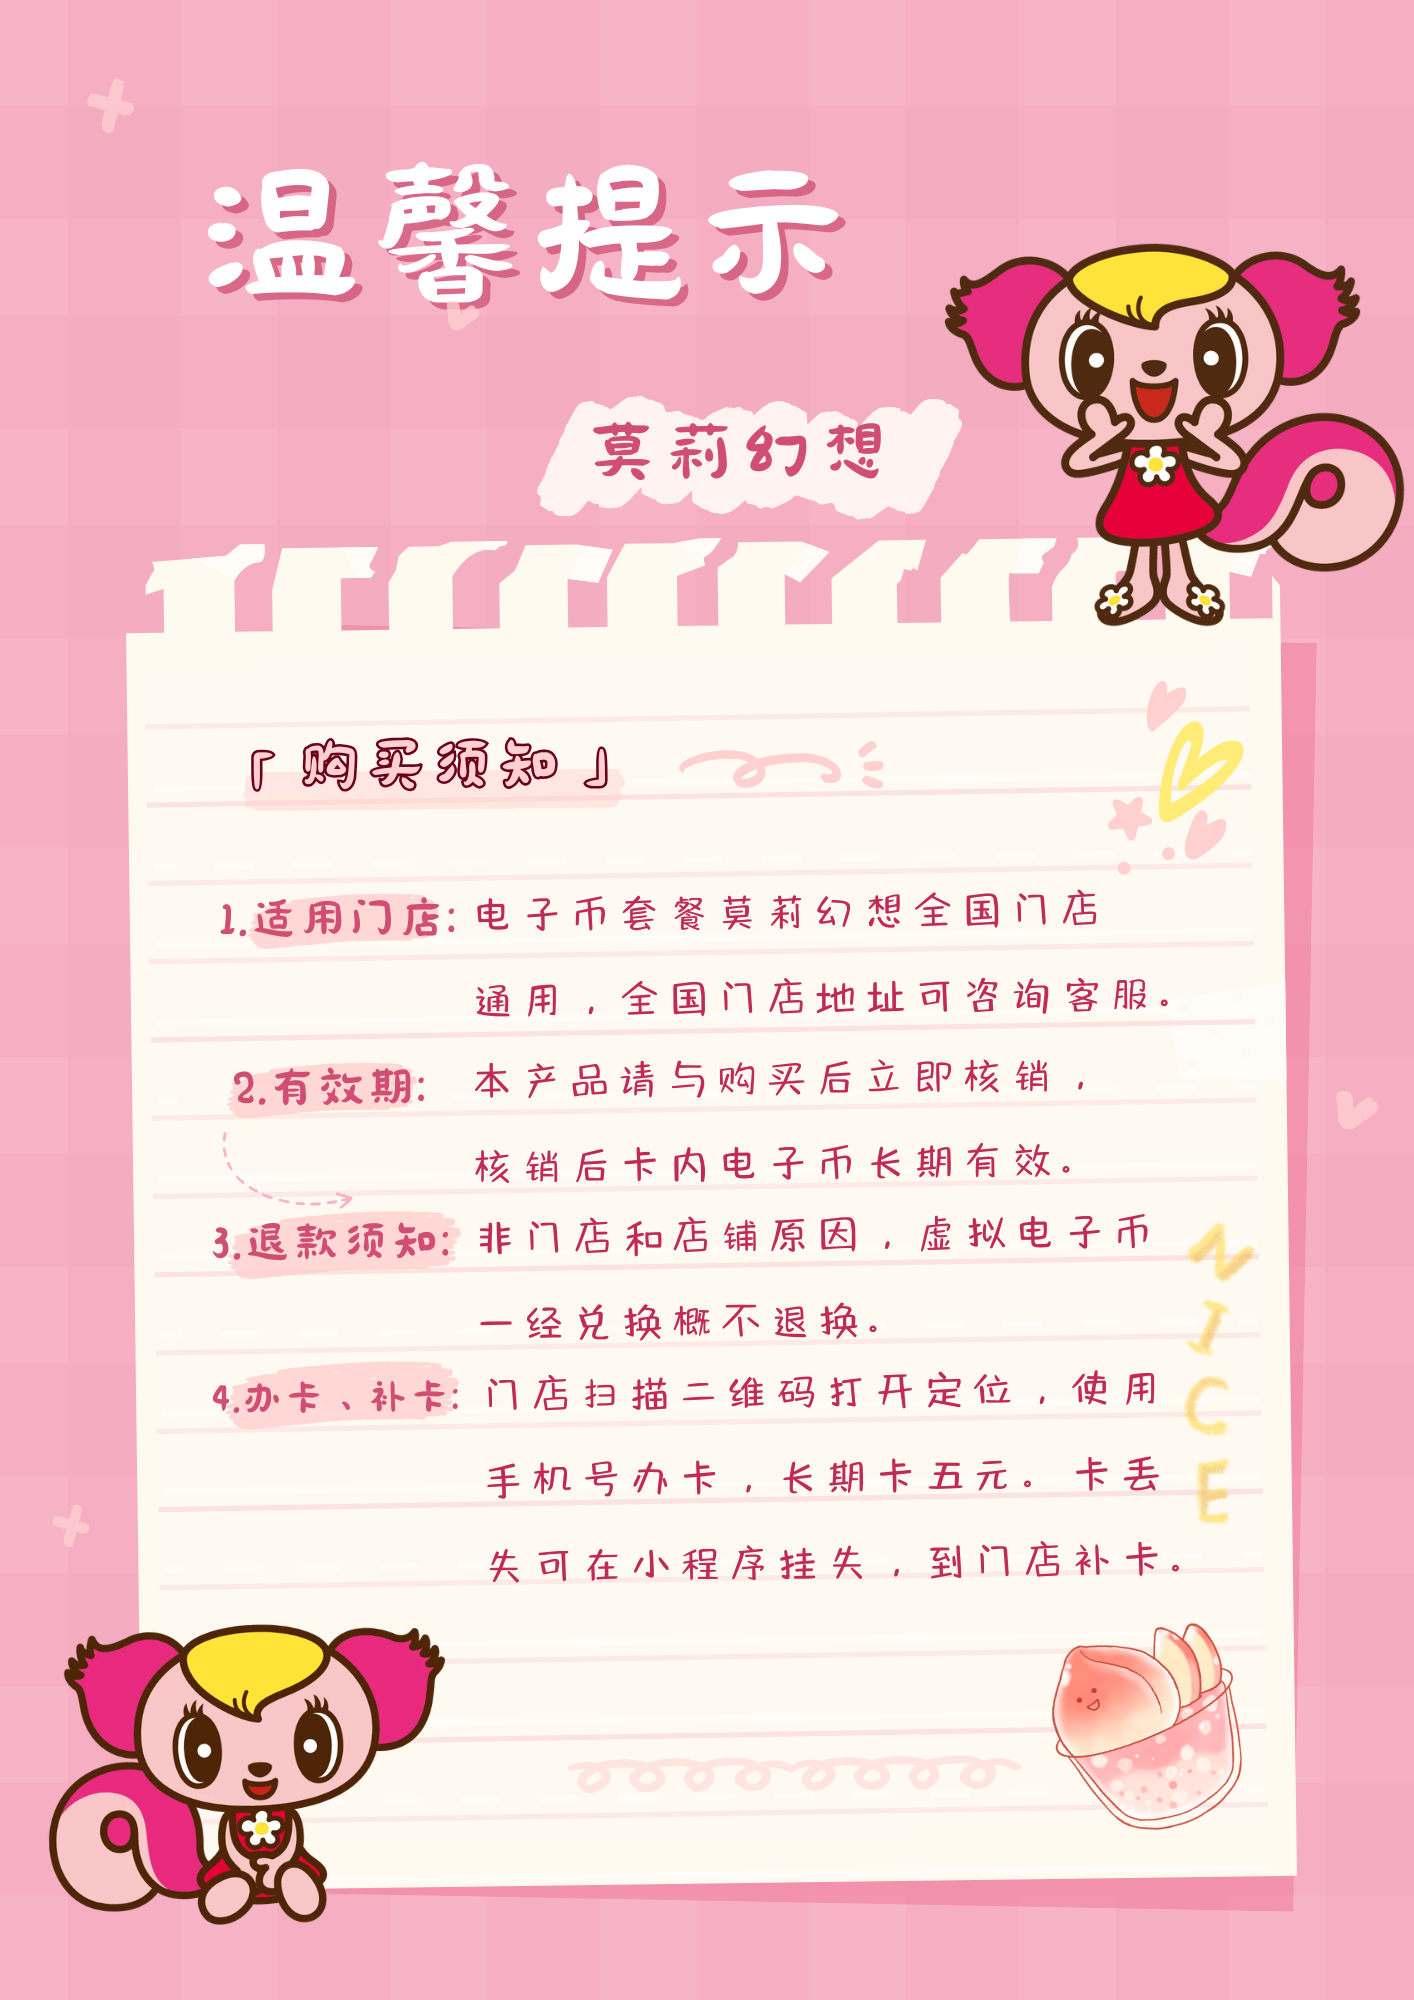 温馨提示
莫莉幻想
「购买须知」
1.适用门店: 电子币套餐莫莉幻想全国门店
通用，全国门店地址可咨询客服。
2.有效期: 本产品请与购买后立即核销，
核销后卡内电子币长期有效。
3.退款须知: 非门店和店铺原因，虚拟电子币
一经兑换概不退换。
4.办卡、补卡: 门店扫描二维码打开定位，使用
手机号办卡，长期卡五元。卡丢
失可在小程序挂失，到门店补卡。
NICE